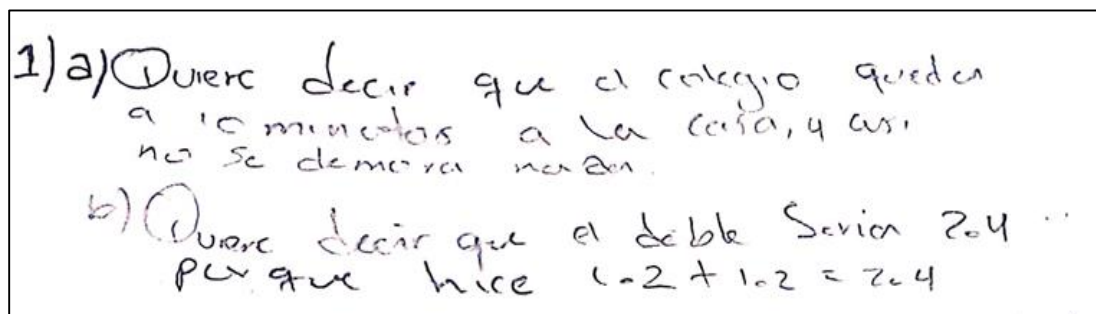 1) a) Quiere decir que el colegio queda
a 10 minutos a la casa, y asi
no se demora nada.
b) Quiere decir que el doble Seria 2.4
porque hice 1.2 + 1.2 = 2.4